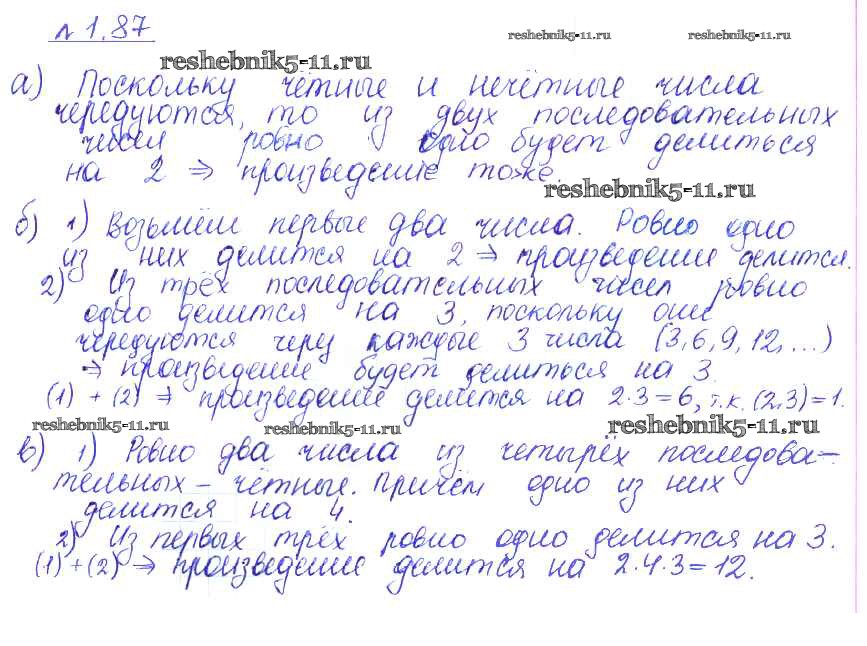 № 1.87
reshebnik5-11.ru reshebnik5-11.ru
reshebnik5-11.ru
а) Поскольку чётные и нечётные числа
чередуются, то из двух последовательных
чисел ровно одно будет делиться
на 2 ⇒ произведение тоже.
reshebnik5-11.ru
б) 1) Возьмём первые два числа. Ровно одно
из них делится на 2 ⇒ произведение делится.
2) Из трёх последовательных чисел ровно
одно делится на 3, поскольку они
чередуются через каждые 3 числа (3, 6, 9, 12, ...)
⇒ произведение будет делиться на 3.
(1) + (2) ⇒ произведение делится на 2·3=6, т.к. (2,3)=1.
reshebnik5-11.ru reshebnik5-11.ru reshebnik5-11.ru
в) 1) Ровно два числа из четырёх последова-
тельных – чётные. Причём одно из них
делится на 4.
2) Из первых трёх ровно одно делится на 3.
(1)+(2) ⇒ произведение делится на 2·4·3=12.